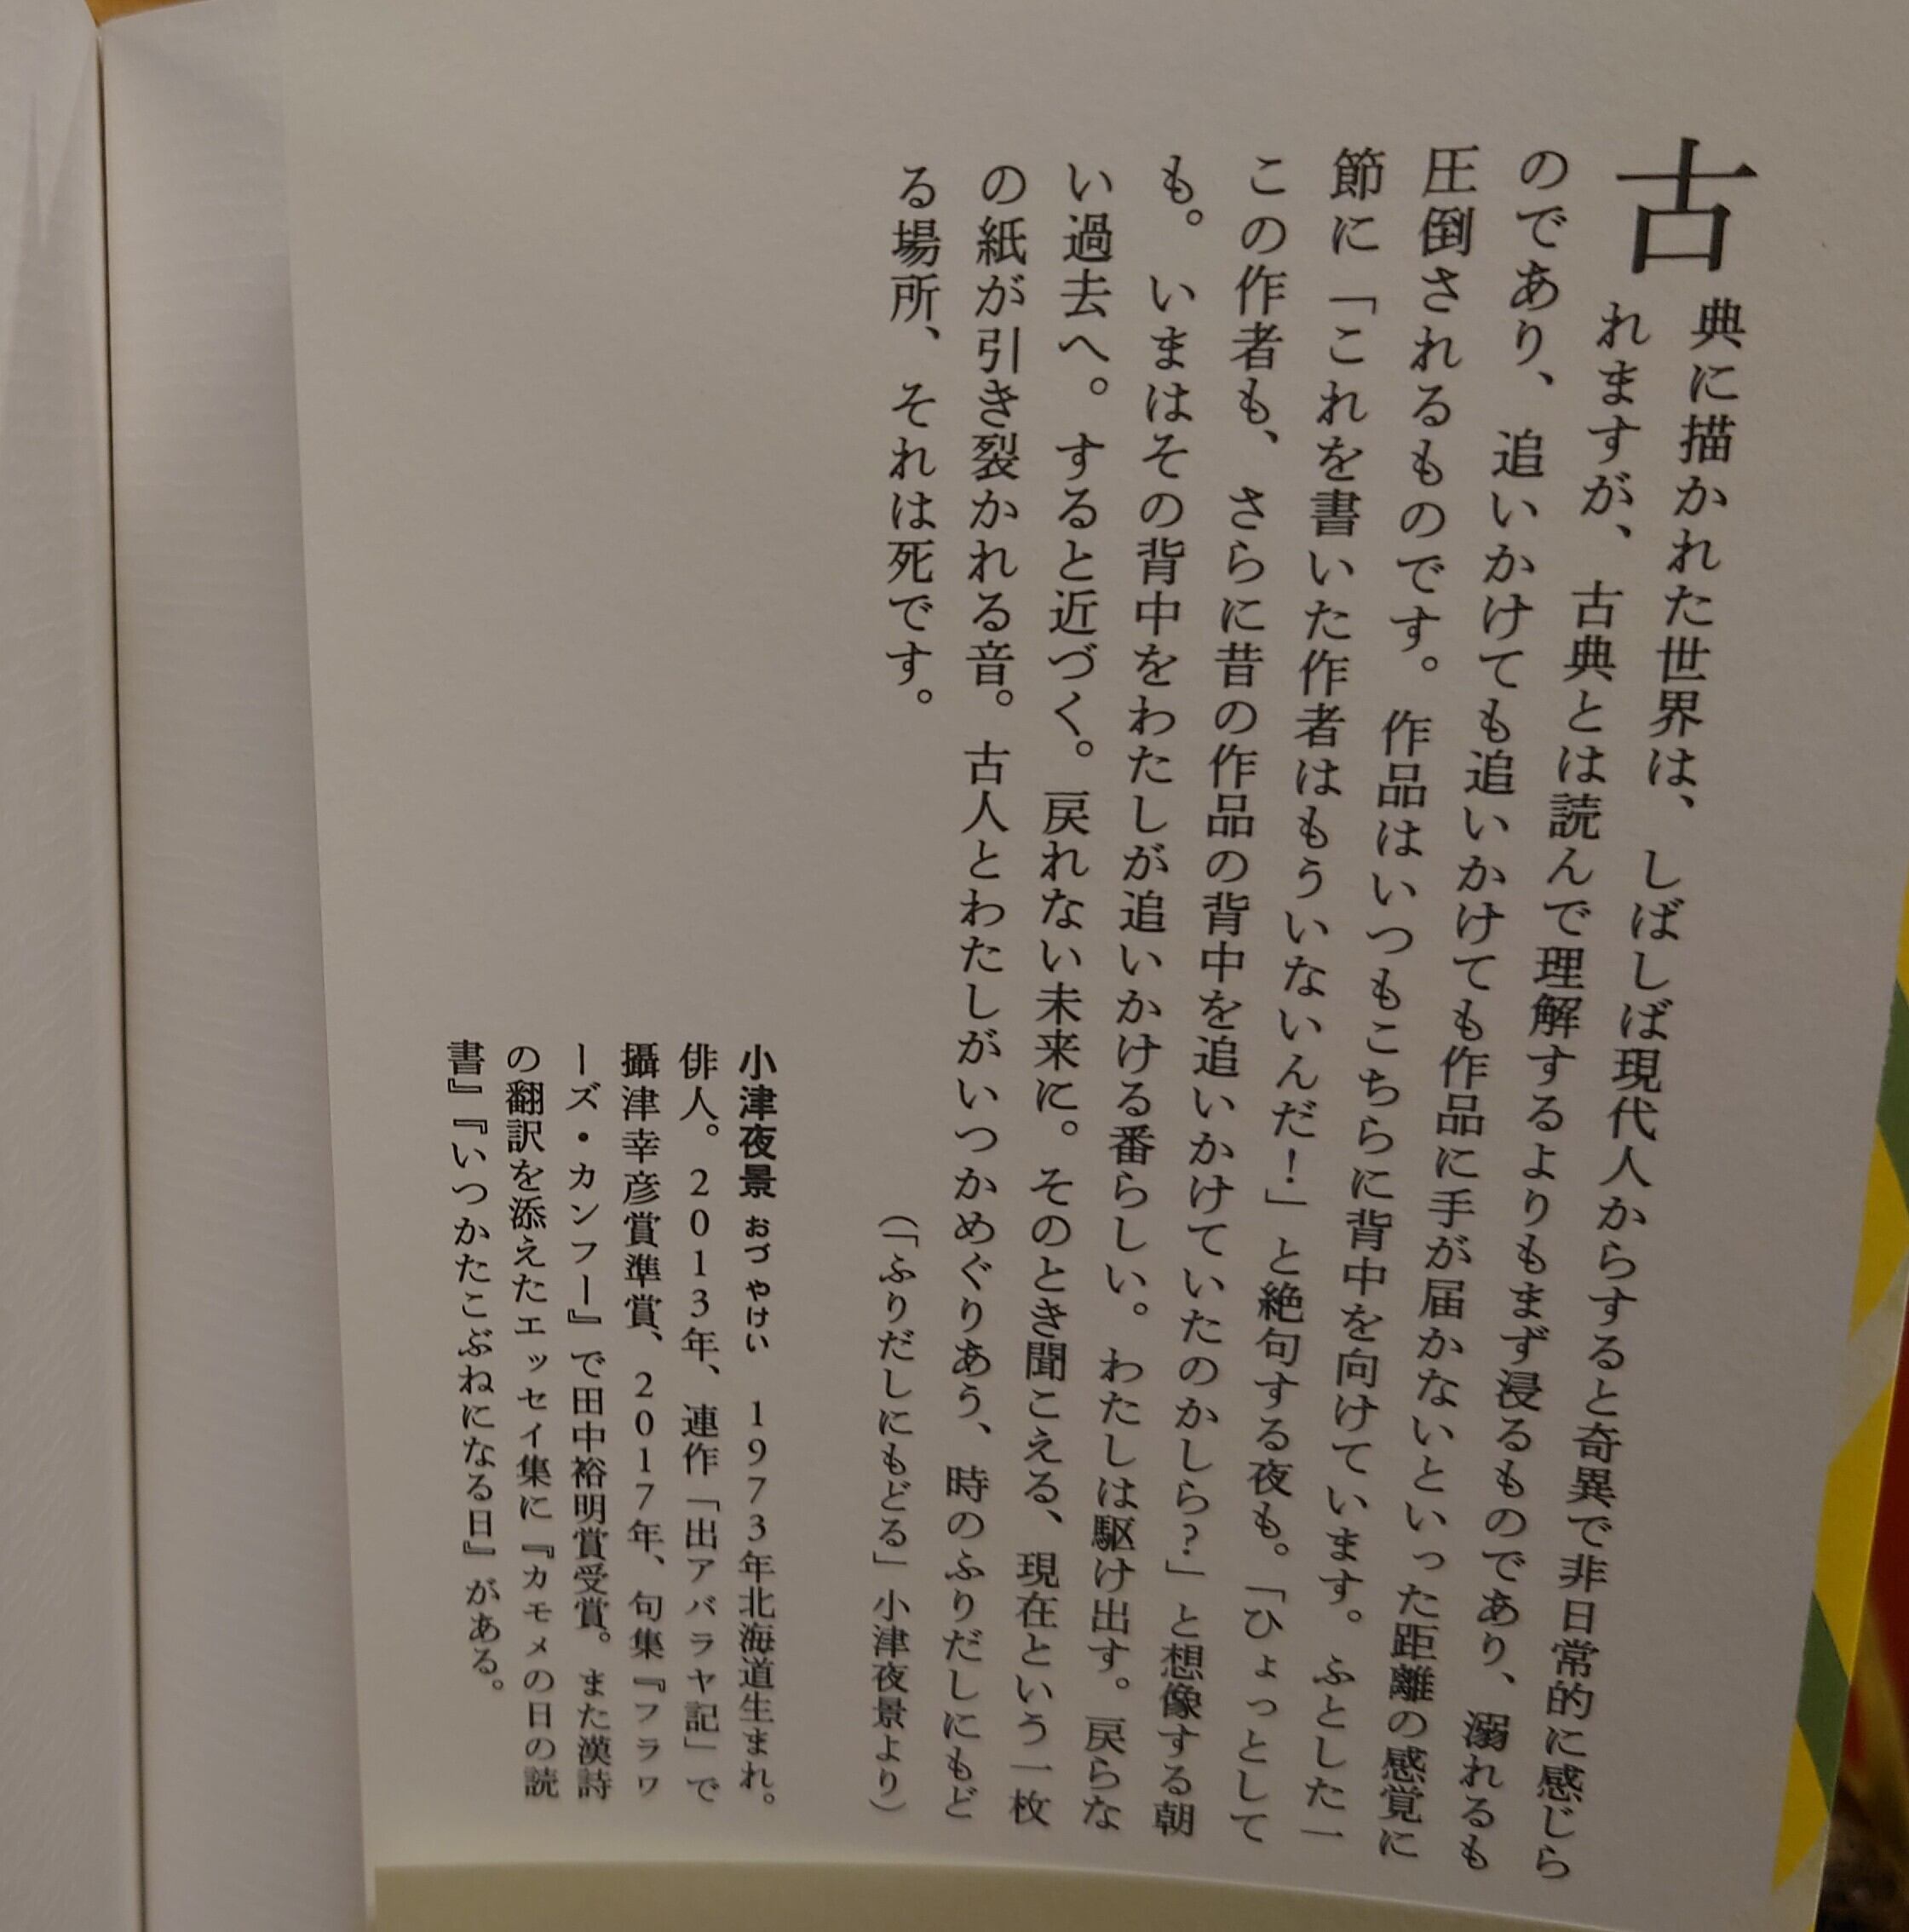 古典に描かれた世界は、しばしば現代人からすると奇異で非日常的に感じら
れますが、古典とは読んで理解するよりもまず浸るものであり、溺れるも
のであり、追いかけても追いかけても作品に手が届かないといった距離の感覚に
圧倒されるものです。作品はいつもこちらに背中を向けています。ふとした一
節に「これを書いた作者はもういないんだ！」と絶句する夜も。「ひょっとして
この作者も、さらに昔の作品の背中を追いかけていたのかしら？」と想像する朝
も。いまはその背中をわたしが追いかける番らしい。わたしは駆け出す。戻らな
い過去へ。すると近づく。戻れない未来に。そのとき聞こえる、現在という一枚
の紙が引き裂かれる音。古人とわたしがいつかめぐりあう、時のふりだしにもど
る場所、それは死です。
（「ふりだしにもどる」小津夜景より）
小津夜景 おづ やけい　1973年北海道生まれ。
俳人。2013年、連作「出アバラヤ記」で
攝津幸彦賞準賞、2017年、句集『フラワ
ーズ・カンフー』で田中裕明賞受賞。また漢詩
の翻訳を添えたエッセイ集に『カモメの日の読
書』『いつかたこぶねになる日』がある。